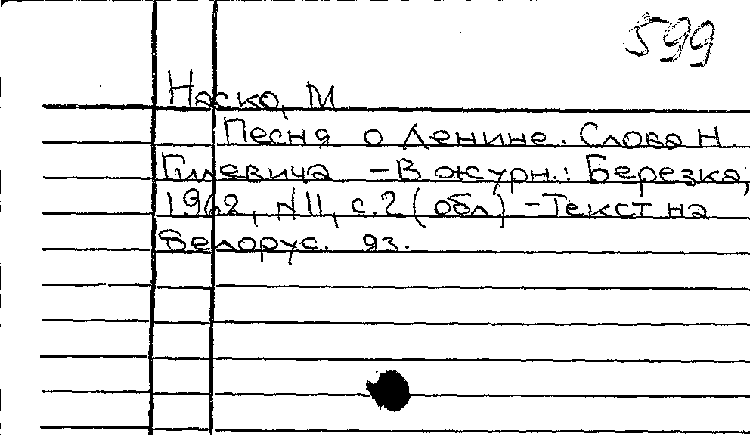 599
Наско, М
Песня о Ленине. Слова Н.
Гилевича – В журн.: Березка,
1962, №11, с.2 (обл) – Текст на
белорус. яз.